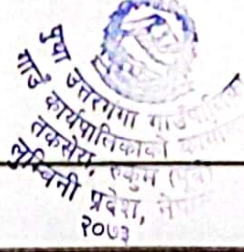 पुथा उत्तरगंगा गाउँपालिका
गाउँ कार्यपालिकाको
तकसेरा, रुकुम (पूर्व)
लुम्बिनी प्रदेश, नेपाल
२०७३